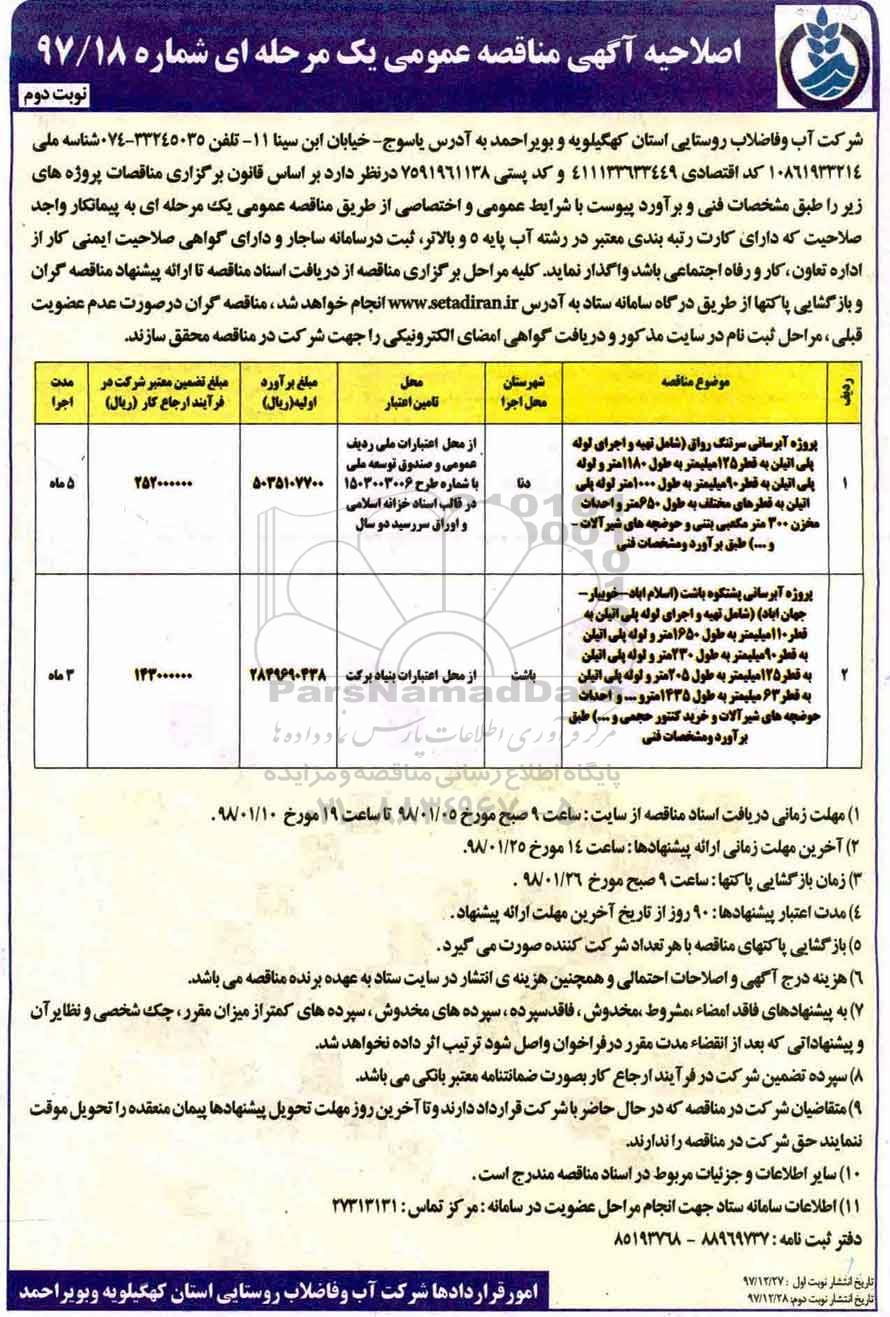 اصلاحیه آگهی مناقصه عمومی یک مرحله ای شماره ۹۷/۱۸
نوبت دوم
شرکت آب وفاضلاب روستایی استان کهگیلویه و بویراحمد به آدرس یاسوج- خیابان ابن سینا ۱۱- تلفن ۳۳۲۴۵۰۳۵-۰۷۴شناسه ملی
۱۰۸۶۱۹۳۳۲۱۴ کد اقتصادی ۴۱۱۱۳۳۶۳۳۴۴۹ و کد پستی ۷۵۹۱۹۶۱۱۳۸ درنظر دارد بر اساس قانون برگزاری مناقصات پروژه های
زیر را طبق مشخصات فنی و برآورد پیوست با شرایط عمومی و اختصاصی از طریق مناقصه عمومی یک مرحله ای به پیمانکار واجد
صلاحیت که دارای کارت رتبه بندی معتبر در رشته آب پایه ۵ و بالاتر، ثبت درسامانه ساجار و دارای گواهی صلاحیت ایمنی کار از
اداره تعاون ،کار و رفاه اجتماعی باشد واگذار نماید. کلیه مراحل برگزاری مناقصه از دریافت اسناد مناقصه تا ارائه پیشنهاد مناقصه گران
و بازگشایی پاکتها از طریق درگاه سامانه ستاد به آدرس www.setadiran.ir انجام خواهد شد ، مناقصه گران درصورت عدم عضویت
قبلی ، مراحل ثبت نام در سایت مذکور و دریافت گواهی امضای الکترونیکی را جهت شرکت در مناقصه محقق سازند.
ردیف
موضوع مناقصه
شهرستان
محل اجرا
محل
تامین اعتبار
مبلغ برآورد
اولیه(ریال)
مبلغ تضمین معتبر شرکت در
فرآیند ارجاع کار (ریال)
مدت
اجرا
۱
پروژه آبرسانی سرتنگ رواق (شامل تهیه و اجرای لوله
پلی اتیلن به قطر۱۲۵میلیمتر به طول ۱۱۸۰متر و لوله
پلی اتیلن به قطر۹۰میلیمتر به طول ۱۰۰۰متر لوله پلی
اتیلن به قطرهای مختلف به طول ۶۵۰متر و احداث
مخزن ۳۰۰ متر مکعبی بتنی و حوضچه های شیرآلات -
و ...) طبق برآورد ومشخصات فنی
دنا
از محل اعتبارات ملی ردیف
عمومی و صندوق توسعه ملی
با شماره طرح ۱۵۰۳۰۰۳۰۰۶
در قالب اسناد خزانه اسلامی
و اوراق سررسید دو سال
۵۰۳۵۱۰۷۷۰۰
۲۵۲۰۰۰۰۰۰
۵ ماه
۲
پروژه آبرسانی پشتکوه باشت (اسلام اباد-خوبیار-
جهان اباد) (شامل تهیه و اجرای لوله پلی اتیلن به
قطر۱۱۰میلیمتر به طول ۱۶۵۰متر و لوله پلی اتیلن
به قطر۹۰میلیمتر به طول ۲۳۰متر و لوله پلی اتیلن
به قطر۱۲۵میلیمتر به طول ۲۰۵متر و لوله پلی اتیلن
به قطر۶۳ میلیمتر به طول ۱۴۳۵مترو ... و احداث
حوضچه های شیرآلات و خرید کنتور حجمی و ...) طبق
برآورد ومشخصات فنی
باشت
از محل اعتبارات بنیاد برکت
۲۸۴۹۶۹۰۴۳۸
۱۴۳۰۰۰۰۰۰
۳ ماه
ParsNamadData
مرکز فرآوری اطلاعات پارس نماد داده ها
پایگاه اطلاع رسانی مناقصه و مزایده
۱) مهلت زمانی دریافت اسناد مناقصه از سایت : ساعت ۹ صبح مورخ ۹۸/۰۱/۰۵ تا ساعت ۱۹ مورخ ۹۸/۰۱/۱۰ .
۲) آخرین مهلت زمانی ارائه پیشنهادها : ساعت ۱۴ مورخ ۹۸/۰۱/۲۵.
۳) زمان بازگشایی پاکتها : ساعت ۹ صبح مورخ ۹۸/۰۱/۲۶ .
۴) مدت اعتبار پیشنهادها : ۹۰ روز از تاریخ آخرین مهلت ارائه پیشنهاد .
۵) بازگشایی پاکتهای مناقصه با هر تعداد شرکت کننده صورت می گیرد .
۶) هزینه درج آگهی و اصلاحات احتمالی و همچنین هزینه ی انتشار در سایت ستاد به عهده برنده مناقصه می باشد.
۷) به پیشنهادهای فاقد امضاء ،مشروط ،مخدوش ، فاقدسپرده ، سپرده های مخدوش ، سپرده های کمتراز میزان مقرر ، چک شخصی و نظایرآن
و پیشنهاداتی که بعد از انقضاء مدت مقرر درفراخوان واصل شود ترتیب اثر داده نخواهد شد.
۸) سپرده تضمین شرکت در فرآیند ارجاع کار بصورت ضمانتنامه معتبر بانکی می باشد.
۹) متقاضیان شرکت در مناقصه که در حال حاضر با شرکت قرارداد دارند وتا آخرین روز مهلت تحویل پیشنهادها پیمان منعقده را تحویل موقت
ننمایند حق شرکت در مناقصه را ندارند.
۱۰) سایر اطلاعات و جزئیات مربوط در اسناد مناقصه مندرج است .
۱۱) اطلاعات سامانه ستاد جهت انجام مراحل عضویت در سامانه : مرکز تماس : ۲۷۳۱۳۱۳۱
دفتر ثبت نامه : ۸۸۹۶۹۷۳۷ - ۸۵۱۹۳۷۶۸
تاریخ انتشار نوبت اول : ۹۷/۱۲/۲۷
تاریخ انتشار نوبت دوم: ۹۷/۱۲/۲۸
امور قراردادها شرکت آب وفاضلاب روستایی استان کهگیلویه وبویراحمد